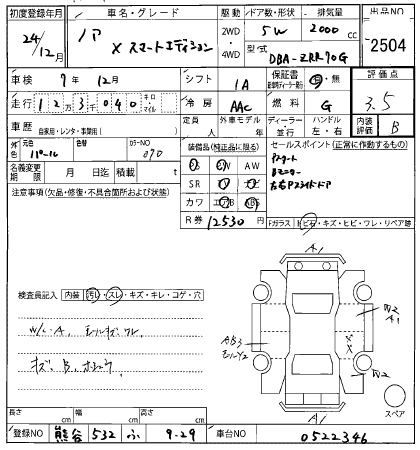 初度登録年月 車名・グレード 駆動 ドア数・形状 排気量 出品NO
24/12月 ノア X スマートエディション 2WD 4WD 5W 2000 cc 2504
型式 DBA-ZRR70G
車検 7年 12月 シフト IA 保証書 (新車時ディーラー発行) 有・無 評価点
走行 12万3千040 キロ・マイル 冷房 AAC 燃料 G 3.5
車歴 自家用・レンタ・事業用( ) 定員 人 外車モデル 年 ディーラー 並行 ハンドル 左・右 内装評価 B
外色 元色 パール カラーNO 070
装備品(純正品に限る) セールスポイント(正常に作動するもの)
PS PW AW
名義変更期限 月 日迄 積載 t
SR TV ナビ
カワ エアB ABS
Bモニター
注意事項(欠品・修復・不具合箇所および状態)
R券 12530円
Fガラス トビ石・キズ・ヒビ・ワレ・リペア跡
検査員記入 内装 汚レ・スレ・キズ・キレ・コゲ・穴
W/L・A、モールキズ、ワレ
キズ、B、
A1
AB3
モールY2
W2
A1
XX
W2
A1
スペア
長さ cm 幅 cm 高さ cm
登録NO 熊谷 532 ふ 9-29 車台NO 0522346